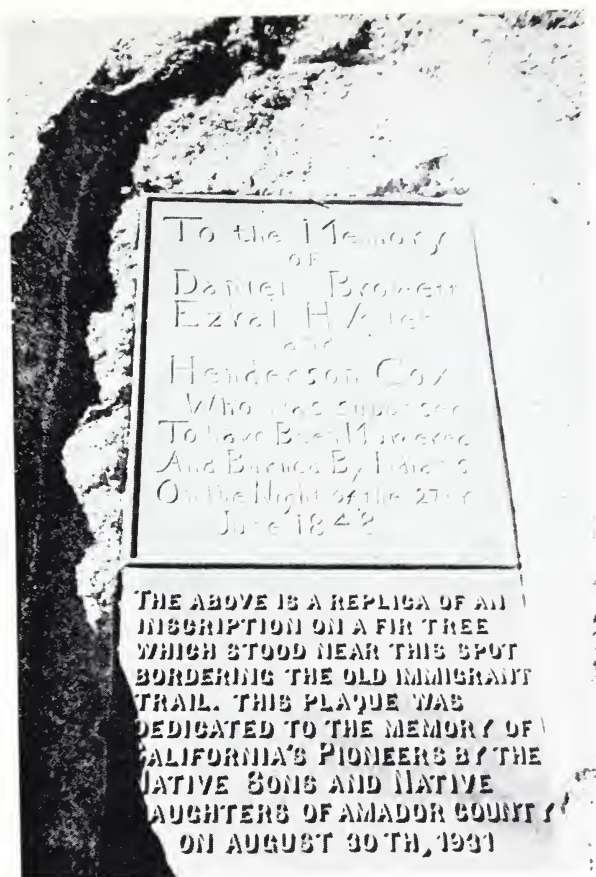 To the Memory
OF
Daniel Browett
Ezrah H Allen
and
Henderson Cox
Who was suposed
To have Been Murdered
And Buried By Indians
On the Night of the 27th
June 1848
THE ABOVE IS A REPLICA OF AN
INSCRIPTION ON A FIR TREE
WHICH STOOD NEAR THIS SPOT
BORDERING THE OLD IMMIGRANT
TRAIL. THIS PLAQUE WAS
DEDICATED TO THE MEMORY OF
CALIFORNIA'S PIONEERS BY THE
NATIVE SONS AND NATIVE
DAUGHTERS OF AMADOR COUNTY
ON AUGUST 30TH, 1931